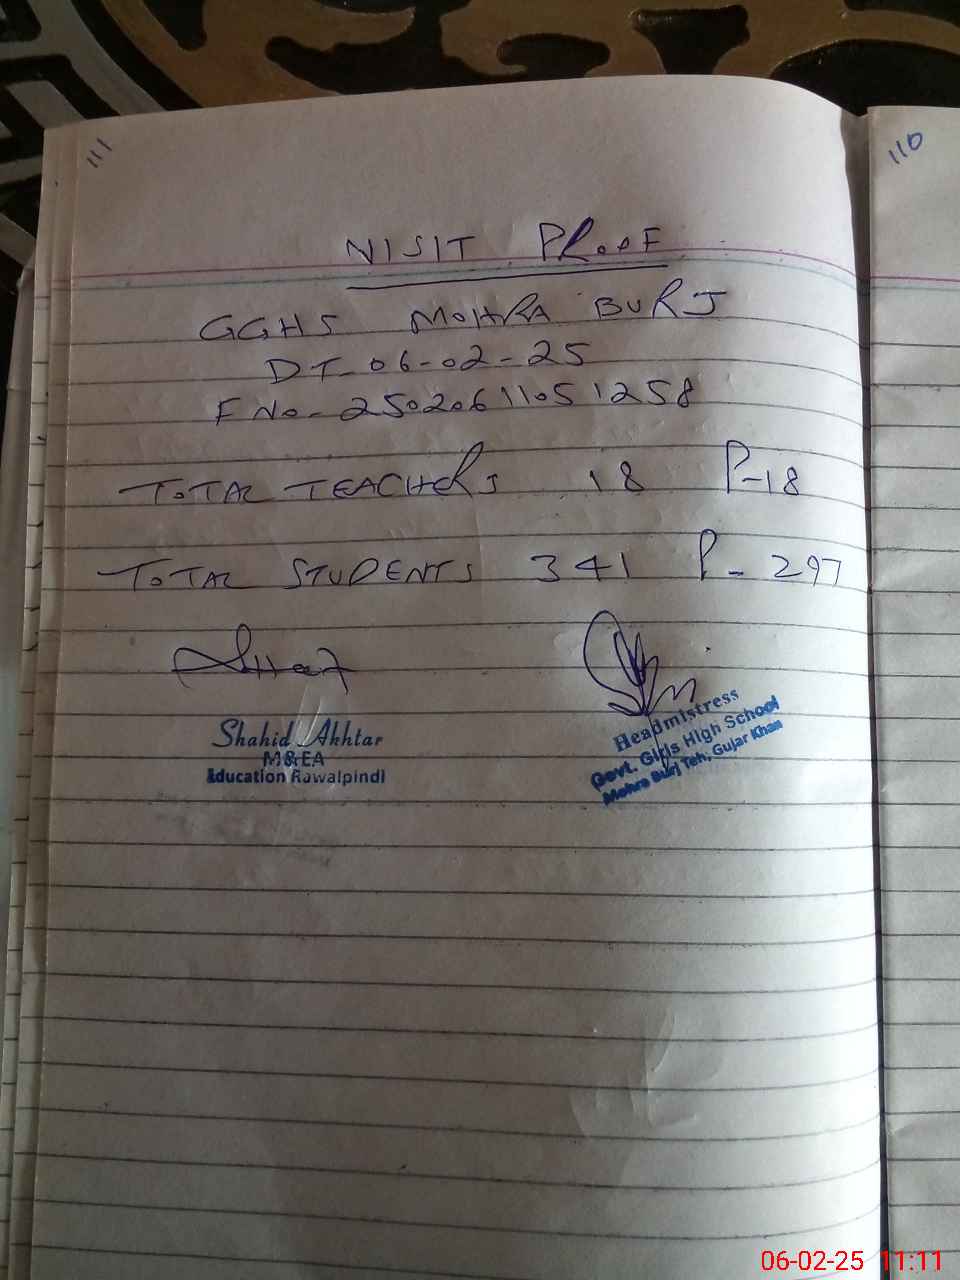 111
110
VISIT PROOF
GGHS MOHRA BURJ
DT-06-02-25
F NO- 25020611051258
TOTAL TEACHERS 18 P-18
TOTAL STUDENTS 341 P- 297
Shahid Akhtar
M&EA
Education Rawalpindi
Headmistress
Govt. Girls High School
Mohra Burj Teh, Gujar Khan
06-02-25 11:11